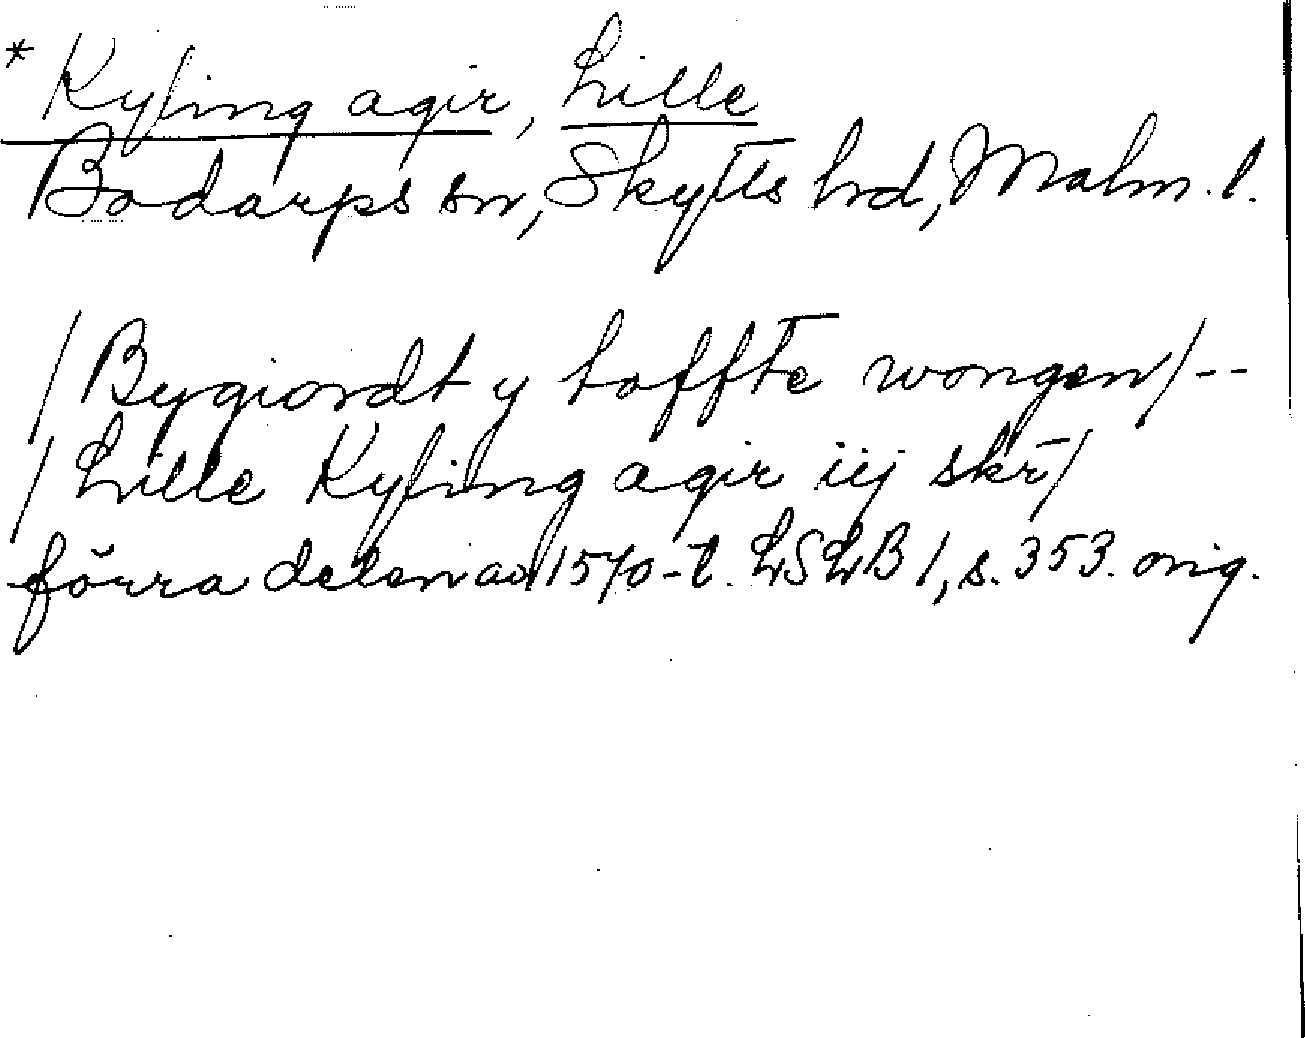 * Kyfing agir, Lille
Bodarps sn, Skytts hd, Malm. l.
/Bygiordt y toffte wongen/--
/Lille Kyfing agir iij skr/
förra delen av 1570-t. LSLB 1, s. 353. orig.